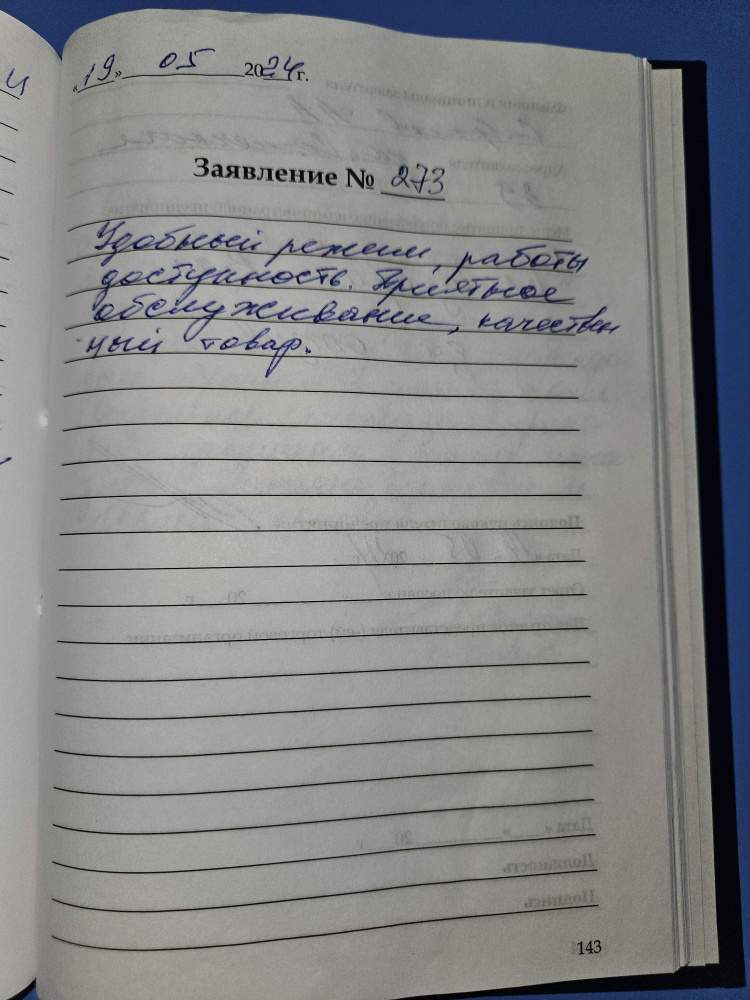 «19» 05 2024 г.
Заявление № 273
Удобный режим, работы
доступность. Приятное
обслуживание, качествен
ный товар.
143